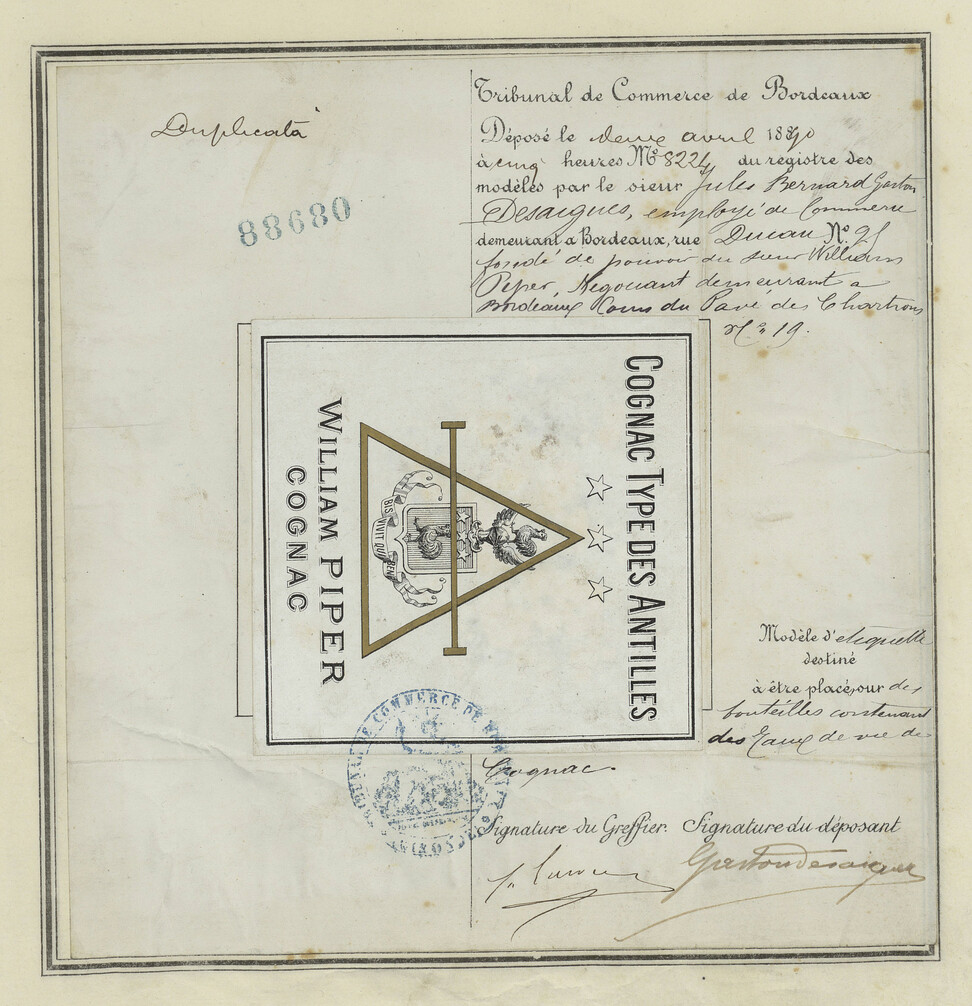 Duplicata
88680
Tribunal de Commerce de Bordeaux
Déposé le deux avril 1890
à cinq heures No 8224 du registre des
modèles par le sieur Jules Bernard Gaston
Desaigues, employé de Commerce
demeurant a Bordeaux, rue Ducau No. 95
fondé de pouvoir du sieur William
Piper, Négociant demeurant a
Bordeaux Cours du Pavé des Chartrons
No 19.
COGNAC TYPE DES ANTILLES
BIS VIVIT QUI BENE
WILLIAM PIPER
COGNAC
Modèle d'etiquette
destiné
à être placé sur des
bouteilles contenant
des Eaux de vie de
Cognac.
TRIBUNAL DE COMMERCE DE
Signature du Greffier. Signature du déposant
Gaston Desaigues